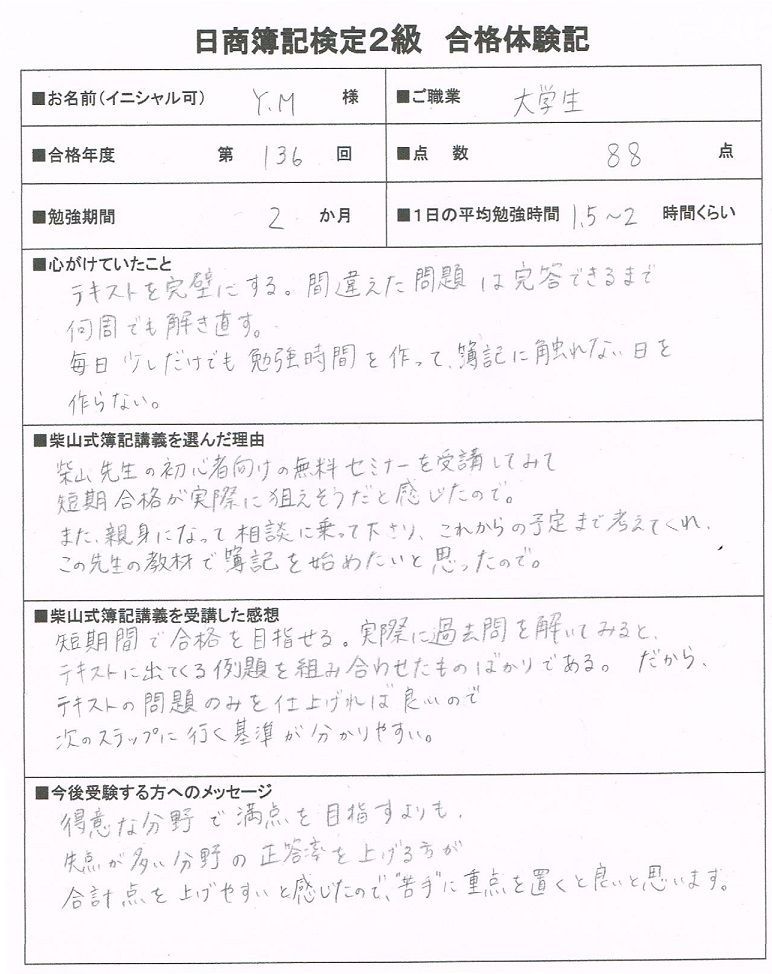 日商簿記検定2級 合格体験記
■お名前(イニシャル可) Y.M 様 ■ご職業 大学生
■合格年度 第 136 回 ■点 数 88 点
■勉強期間 2 か月 ■1日の平均勉強時間 1.5~2 時間くらい
■心がけていたこと
テキストを完璧にする。間違えた問題は完答できるまで
何周でも解き直す。
毎日少しだけでも勉強時間を作って、簿記に触れない日を
作らない。
■柴山式簿記講義を選んだ理由
柴山先生の初心者向けの無料セミナーを受講してみて
短期合格が実際に狙えそうだと感じたので。
また、親身になって相談に乗って下さり、これからの予定まで考えてくれ、
この先生の教材で簿記を始めたいと思ったので。
■柴山式簿記講義を受講した感想
短期間で合格を目指せる。実際に過去問を解いてみると、
テキストに出てくる例題を組み合わせたものばかりである。 だから、
テキストの問題のみを仕上げれば良いので
次のステップに行く基準が分かりやすい。
■今後受験する方へのメッセージ
得意な分野で満点を目指すよりも、
失点が多い分野の正答率を上げる方が
合計点を上げやすいと感じたので、"苦手"に重点を置くと良いと思います。